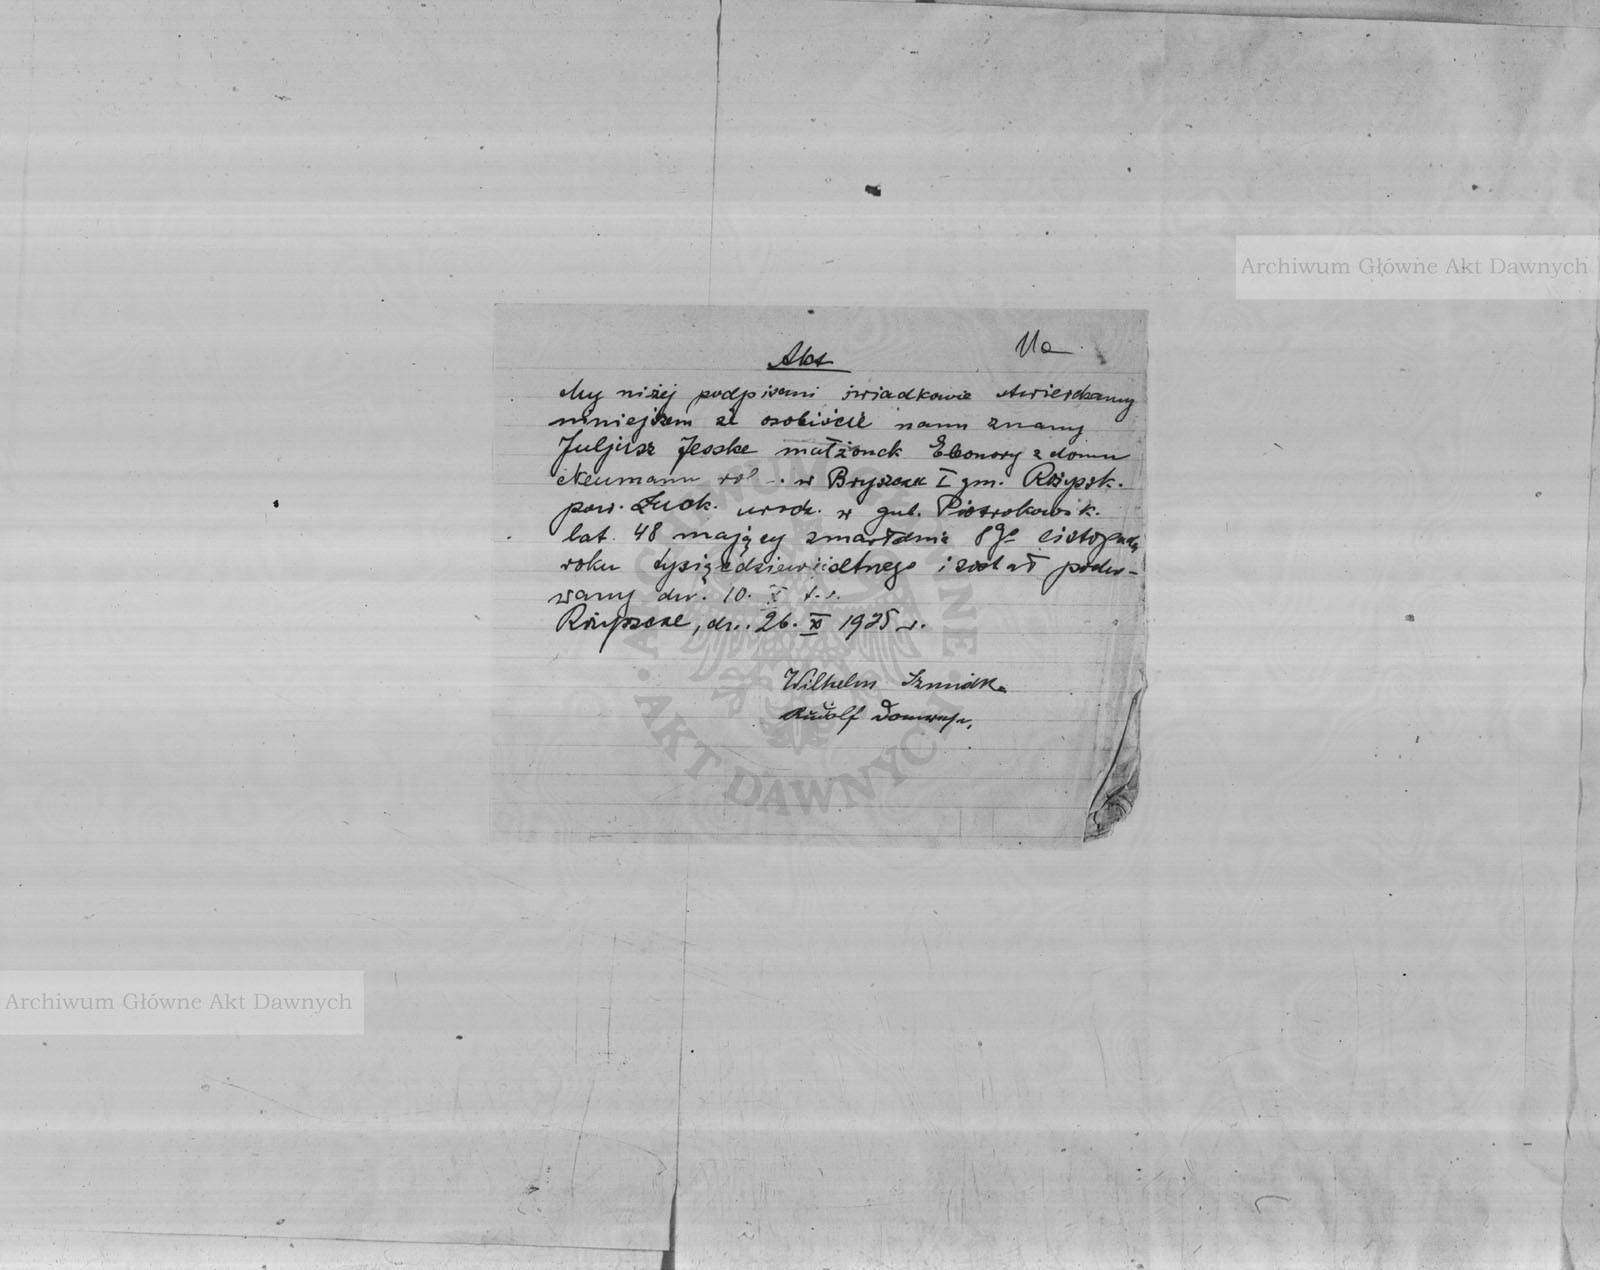 Archiwum Główne Akt Dawnych
11a
Akt
My niżej podpisani świadkowie stwierdzamy
niniejszem że osobiście nam znany
Juljusz Jeske małżonek Eleonory z domu
Neumann rol w Bryszcze I gm. Rożyszk.
pow. Łuck. urodz. w gub. Piotrokowsk.
lat 48 mający zmarł dnia 8go listopada
roku tysiącdziewięćsetnego i został pocho-
wany dn. 10. X t.r.
Rożyszcze, dn. 26. XI 1925 r.
Wilhelm
Rudolf
ARCHIWUM GŁÓWNE AKT DAWNYCH
Archiwum Główne Akt Dawnych